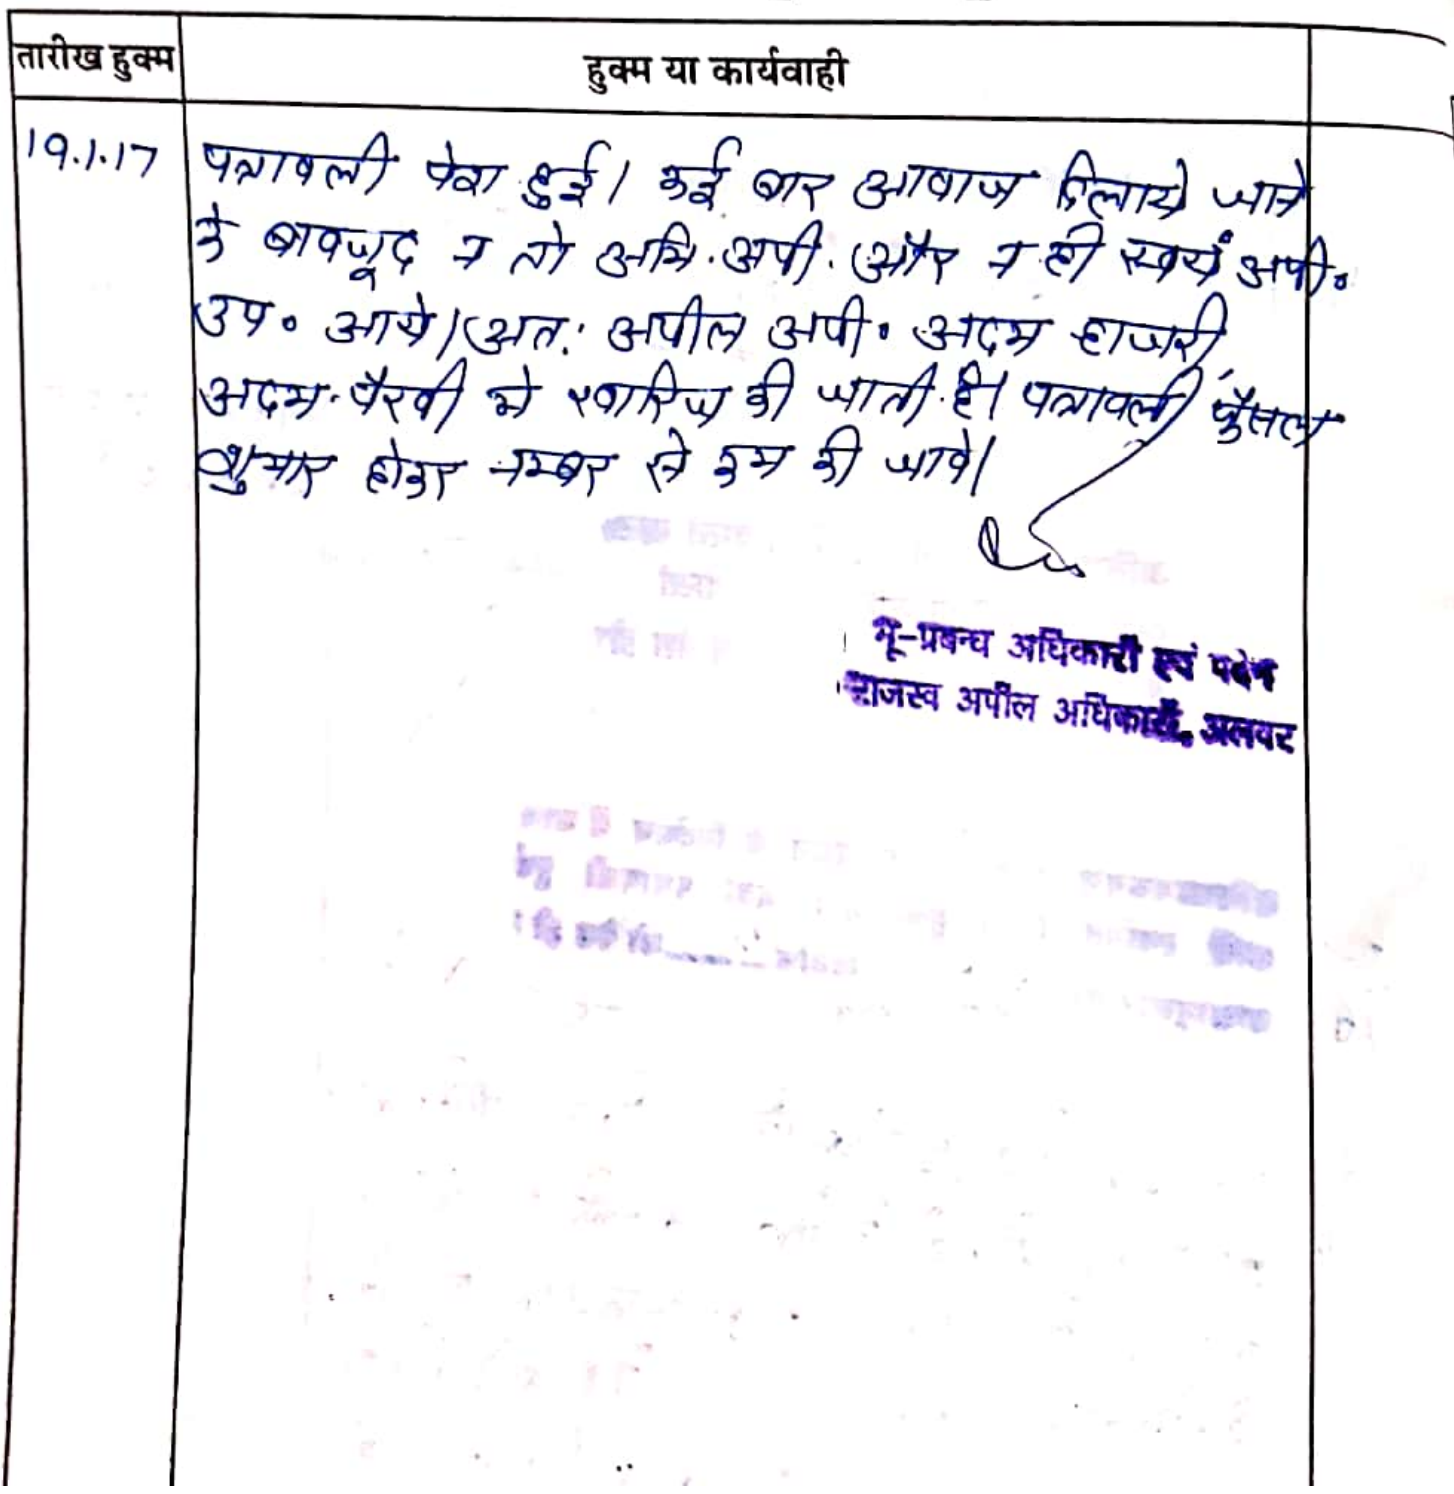 तारीख हुक्म
हुक्म या कार्यवाही
19.1.17
पत्रावली पेश हुई। कई बार आवाज दिलाये जाने
के बावजूद न तो अभि. अपी. और न ही स्वयं अपी॰
उप॰ आये। अतः अपील अपी॰ अदम हाजरी,
अदम पैरवी में खारिज की जाती है। पत्रावली फैसल
शुमार होकर नम्बर से कम की जावे।
भू-प्रबन्ध अधिकारी एवं पदेन
राजस्व अपील अधिकारी, अलवर